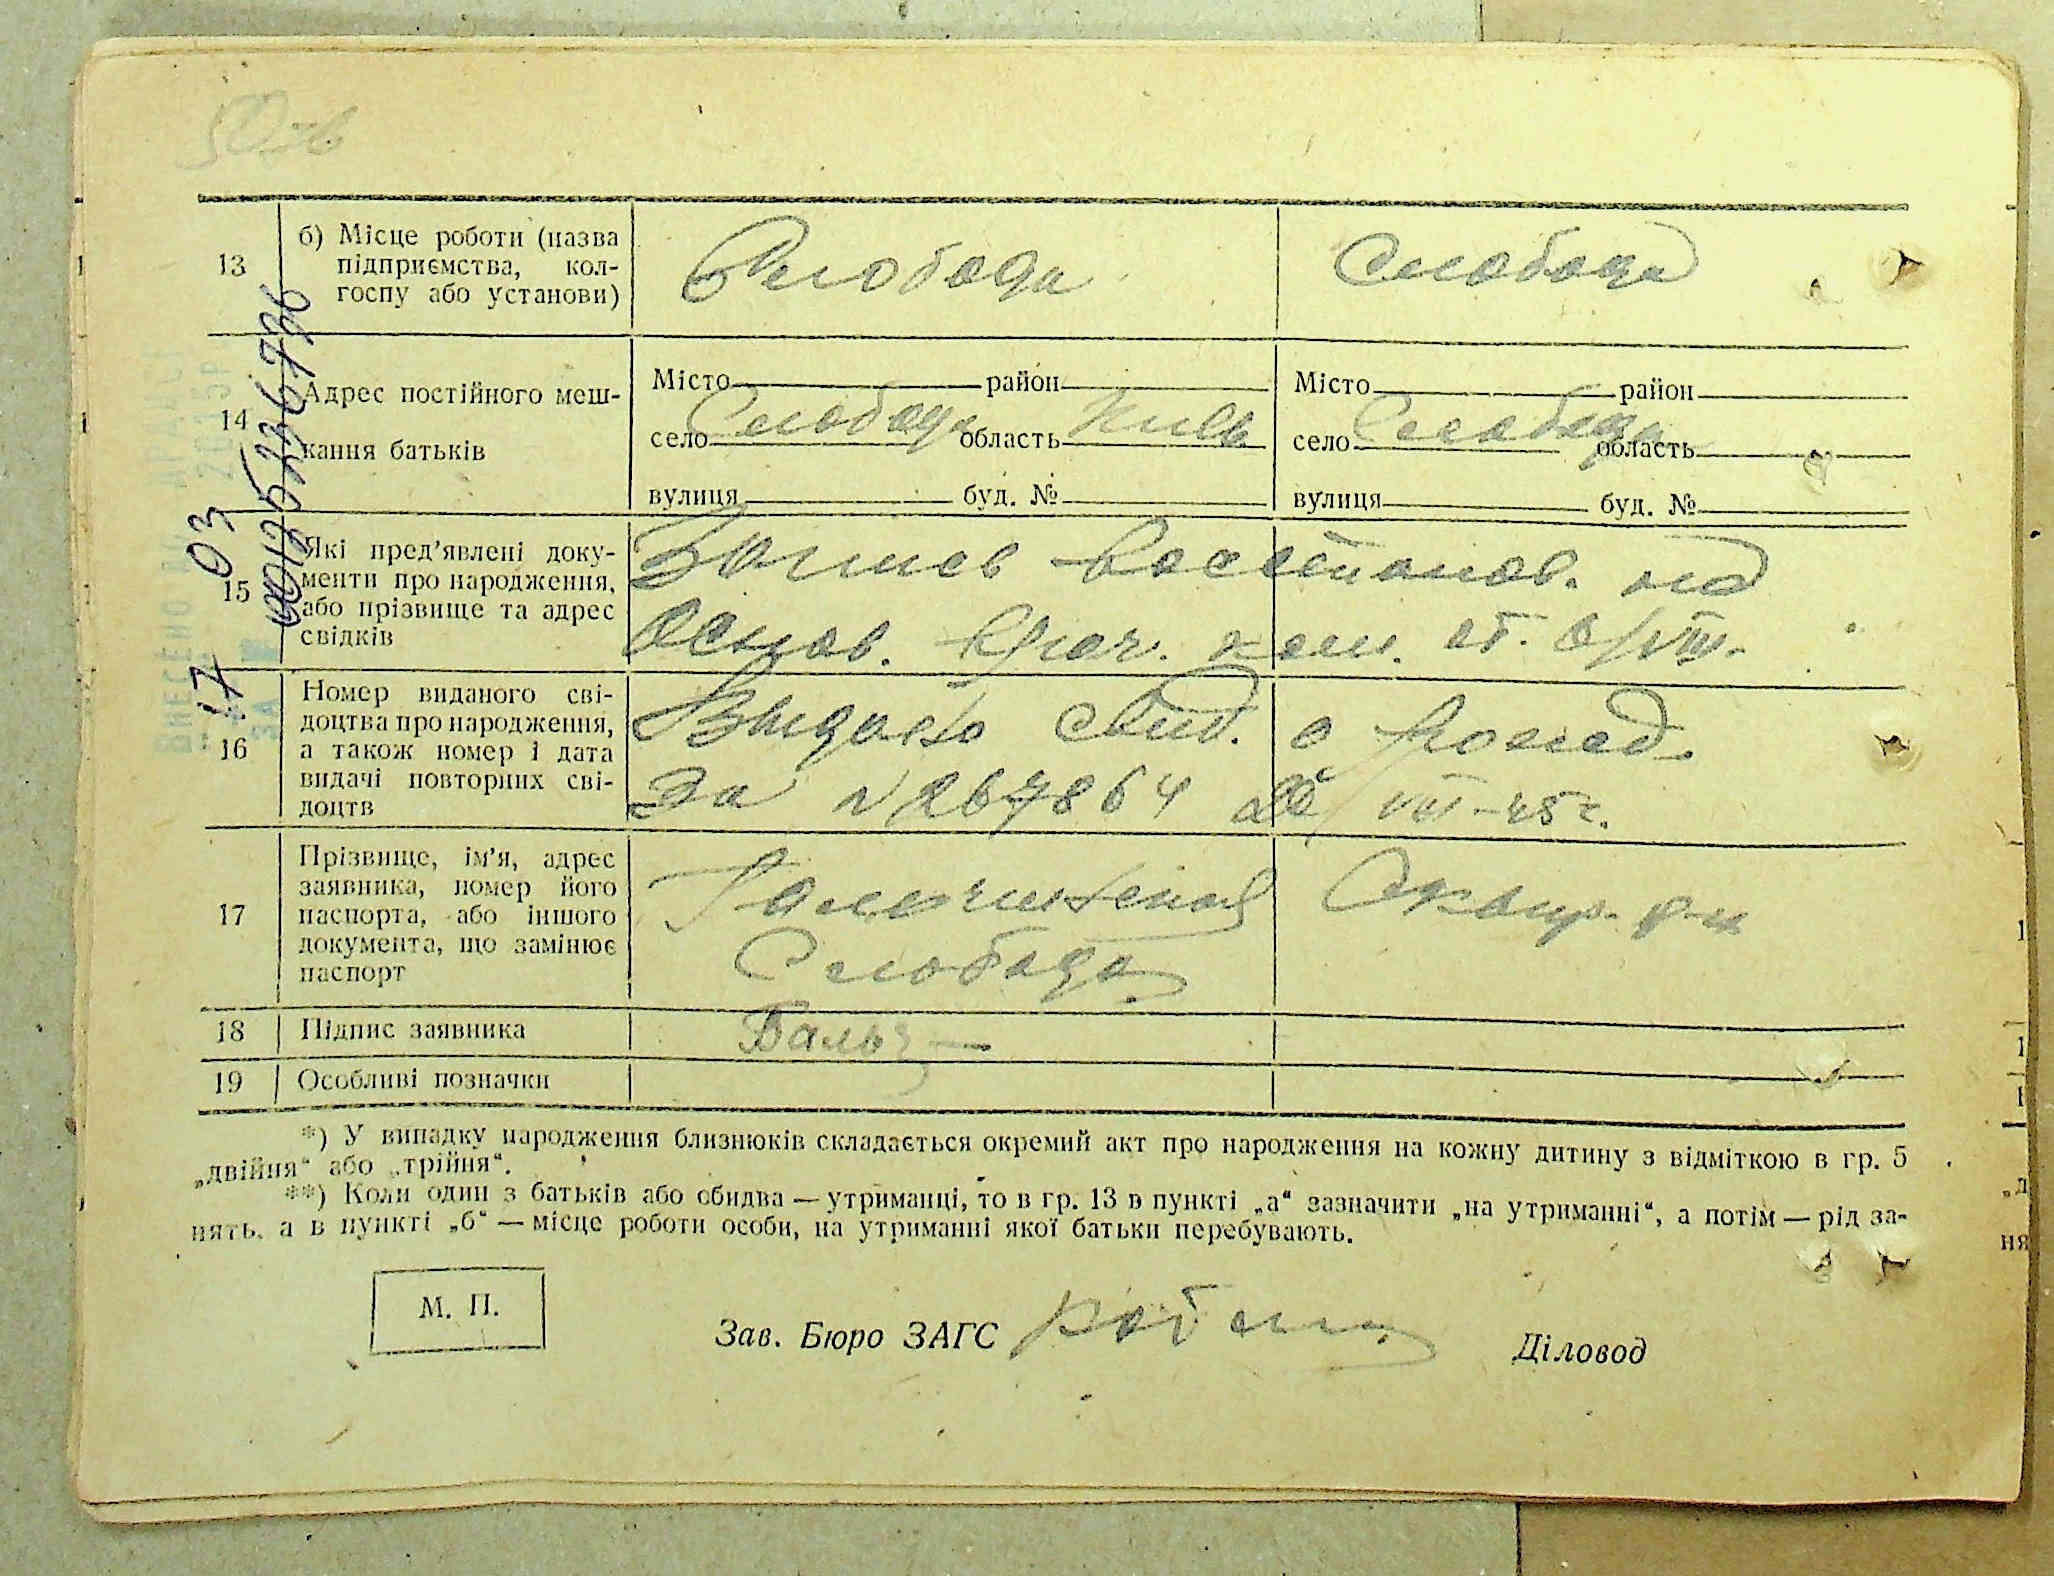 13
б) Місце роботи (назва
підприємства, кол-
госпу або установи)
Слобода
Слобода
14
Адрес постійного меш-
кання батьків
Місто район
село Слобода область Київ
вулиця буд. №
Місто район
село Слобода область
вулиця буд. №
15
Які пред’явлені доку-
менти про народження,
або прізвище та адрес
свідків
Запись восстанов. на
основ. врач. ком. от.
16
Номер виданого сві-
доцтва про народження,
а також номер і дата
видачі повторних сві-
доцтв
Выдано свид. о рожд.
за № 267864 VIII-45 г.
17
Прізвище, ім’я, адрес
заявника, номер його
паспорта, або іншого
документа, що замінює
паспорт
Слобода
Сквир. р-н
18
Підпис заявника
19
Особливі позначки
*) У випадку народження близнюків складається окремий акт про народження на кожну дитину з відміткою в гр. 5
„двійня“ або „трійня“.
**) Коли один з батьків або обидва — утриманці, то в гр. 13 в пункті „а“ зазначити „на утриманні“, а потім — рід за-
нять, а в пункті „б“ — місце роботи особи, на утриманні якої батьки перебувають.
М. П.
Зав. Бюро ЗАГС
Діловод
17 03